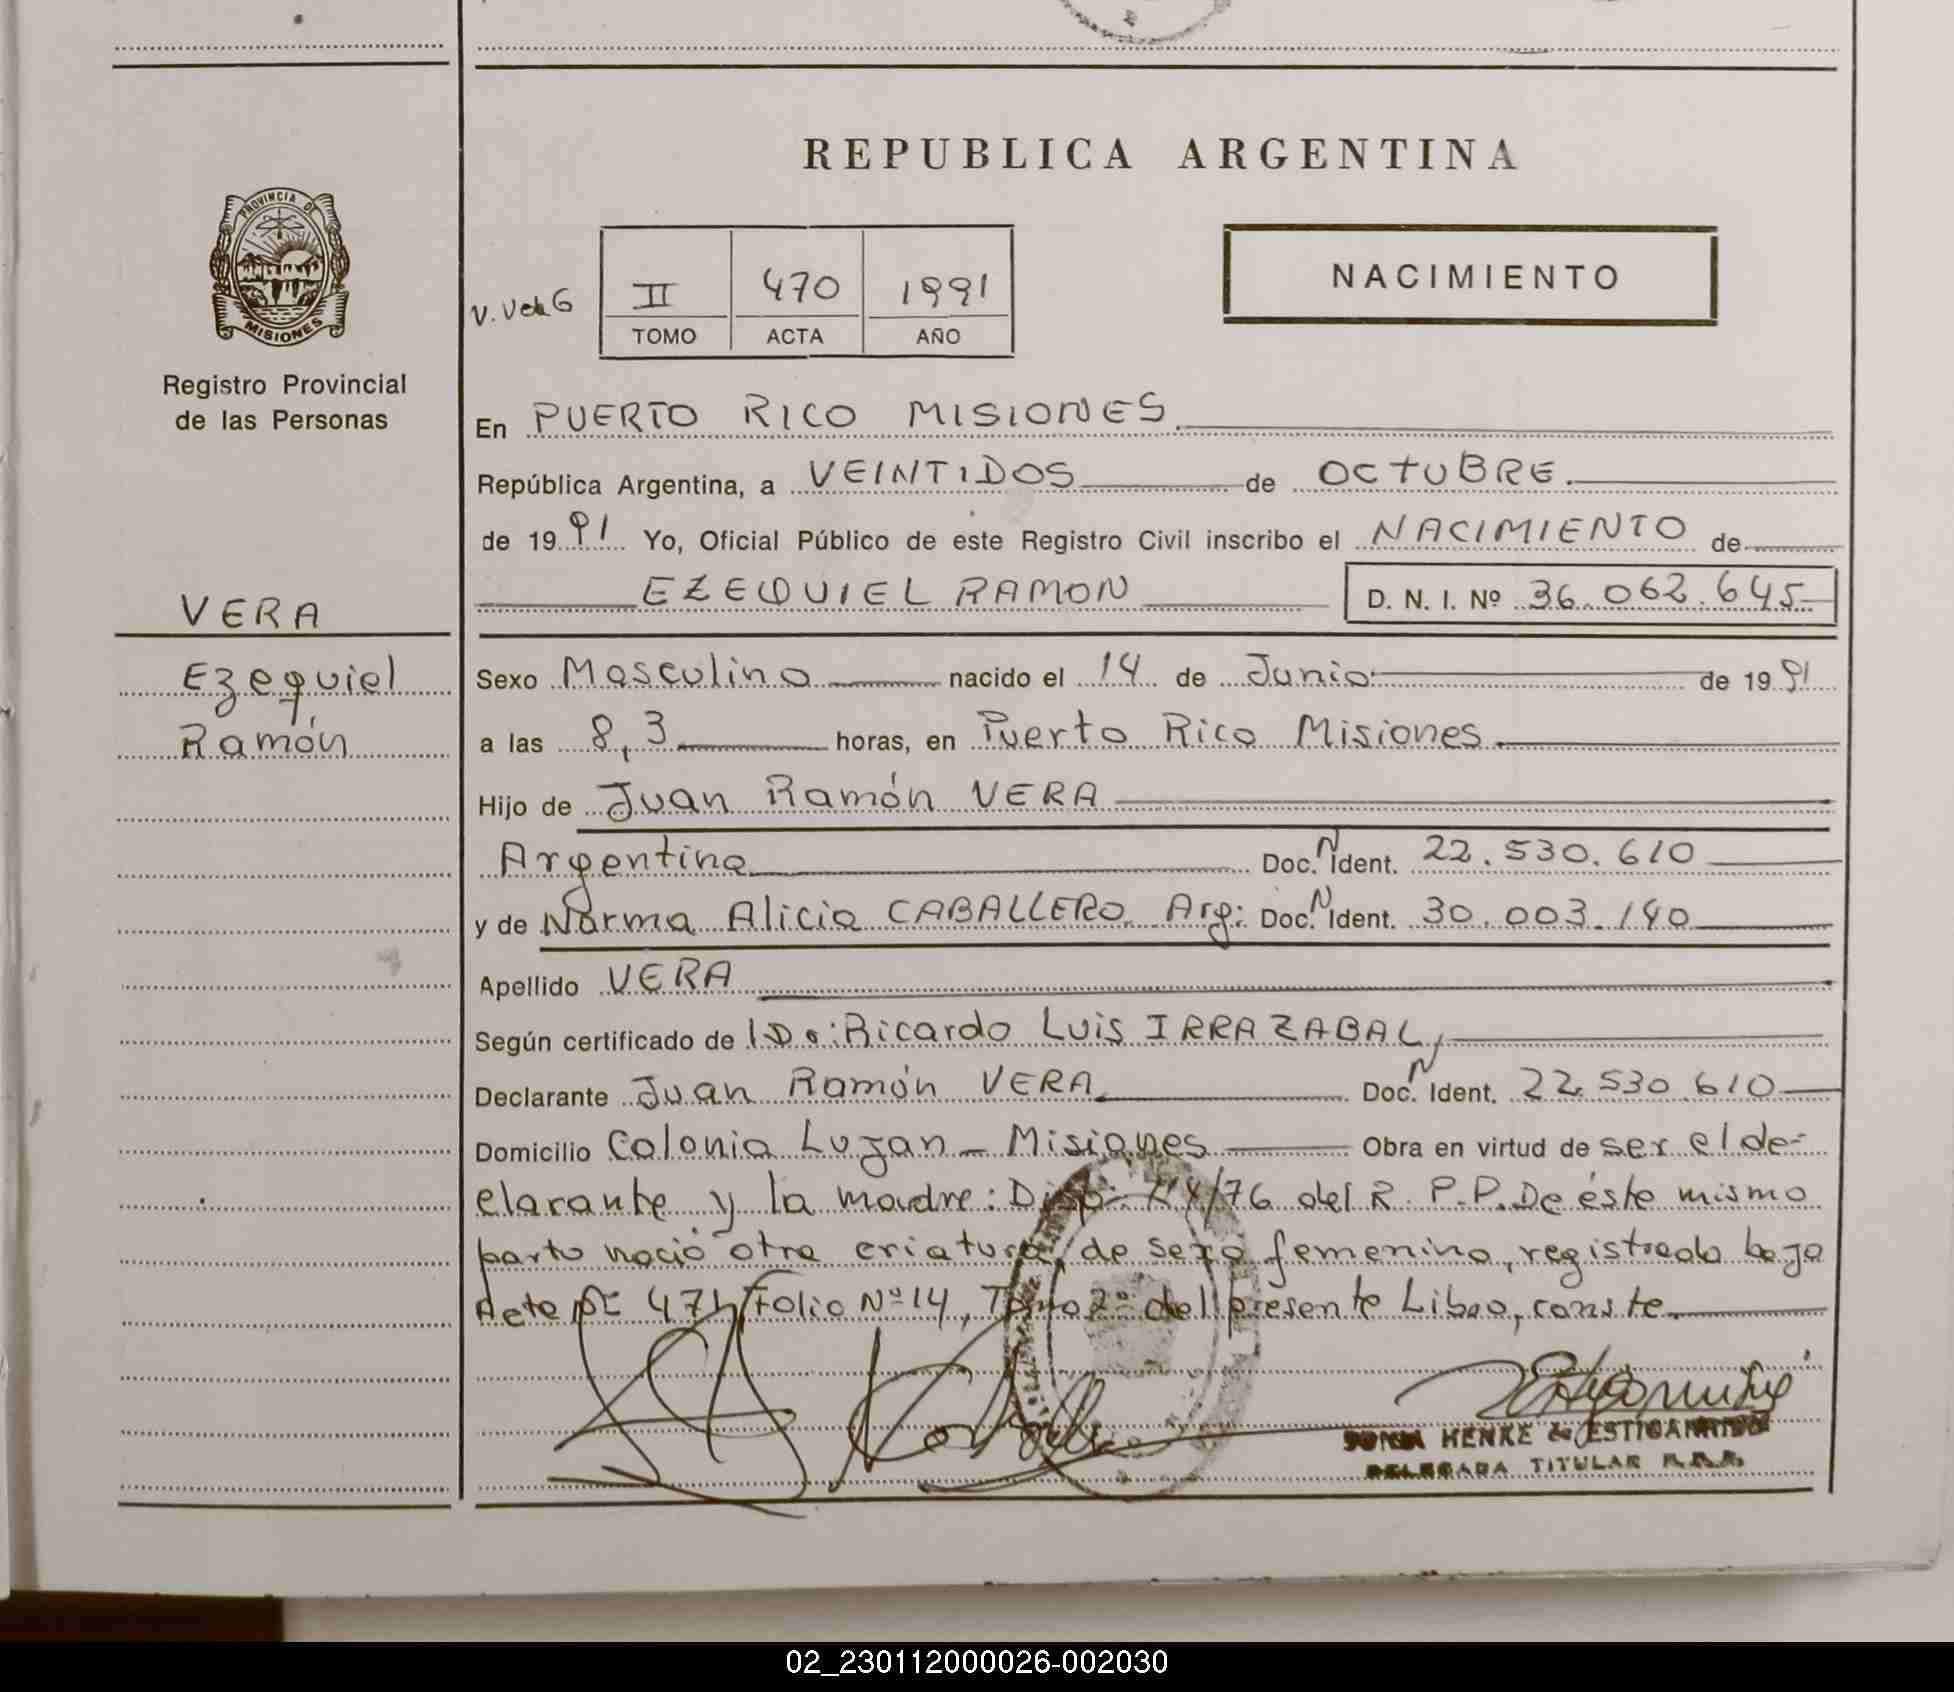 REPUBLICA ARGENTINA
PROVINCIA DE
MISIONES
Registro Provincial
de las Personas
II 470 1991
TOMO ACTA AÑO
NACIMIENTO
En PUERTO RICO MISIONES
República Argentina, a VEINTIDOS de OCTUBRE.
de 1991 Yo, Oficial Público de este Registro Civil inscribo el NACIMIENTO de
EZEQUIEL RAMON D. N. I. Nº 36.062.645
VERA
Ezequiel
Ramón
Sexo Masculino nacido el 14 de Junio de 1991
a las 8,3 horas, en Puerto Rico Misiones
Hijo de Juan Ramón VERA
Argentino Doc. N Ident. 22.530.610
y de Norma Alicia CABALLERO Arg: Doc. N Ident. 30.003.140
Apellido VERA
Según certificado de Ricardo Luis IRRAZABAL,
Declarante Juan Ramón VERA Doc. N Ident. 22.530.610
Domicilio Colonia Lujan - Misiones Obra en virtud de ser el de-
clarante y la madre: /76 del R. P.P. De éste mismo
parto nació otra criatura, de sexo femenino, registrada bajo
Acta Nº 471, Folio Nº 14, Tomo 2º del presente Libro, conste.
HENKE de ESTIGARRIBIA
DELEGADA TITULAR
02_230112000026-002030